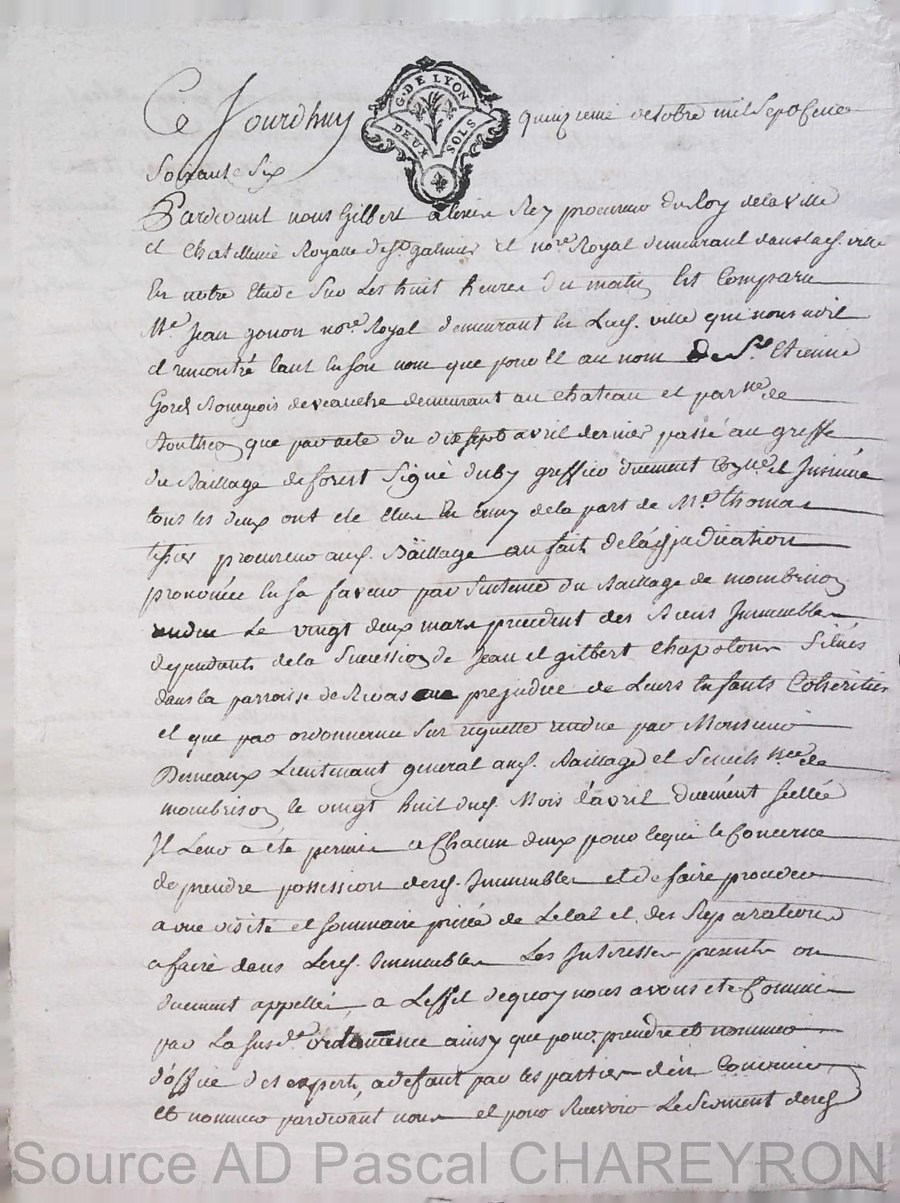 Ce Jourdhuy quinzieme octobre mil Sept Cent
G. DE LYON
DEUX SOLS
Soixante Six
Pardevant nous Gilbert Rey procureur du Roy de la ville
et Chatellenie Royalle de St. galmier et nore. Royal demeurant dans lad. ville
En notre Etude Sur Les huit heures du matin Est Comparu
Me. Jean gonon nore. Royal demeurant En Lad. ville qui nous a dit
et remontré tant En son nom que pour et au nom De Sr. Etienne
Gord Bourgeois de veauche demeurant au Chateau et parsse. de
Boutheon que par acte du dix sept avril dernier passé au greffe
du Baillage de forest Signé duby greffier duement Conlle. et Insinué
tous les deux ont été Elus En amy de la part de Me. thomas
procureur aud. Baillage au fait de l'adjudication
prononcée En sa faveur par Sentence du Baillage de mombrison
rendue Le vingt deux mars precedent des Biens Immeubles
dependants de la Succession de Jean et gilbert Chapelon Situés
dans la parroisse de Rivas au prejudice de Leurs Enfants Coheritiers
et que par ordonnance Sur requette rendue par Monsieur
Demeaux Lieutenant general aud. Baillage et Senechssee. de
mombrison le vingt huit dud. Mois d'avril duement scellée
Il Leur a été permis a Chacun deux pour lequi le Concerne
de prendre possession desd. Immeubles et de faire proceder
a une visite et sommaire prisée de Letat et des Reparations
a faire dans Lesd. Immeubles Les Interessés presents ou
duement appellés, a Leffet dequoy nous avons eté Commis
par La susde. ordonnance ainsy que pour prendre et nommer
d'office des experts, a defaut par les parties d'en Convenir
et nommer pardevant nous et pour Recevoir Le Serment desd
Source AD Pascal CHAREYRON